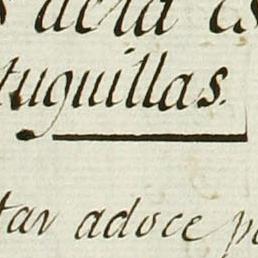 s acia es
tuguillas.
tar adoce p